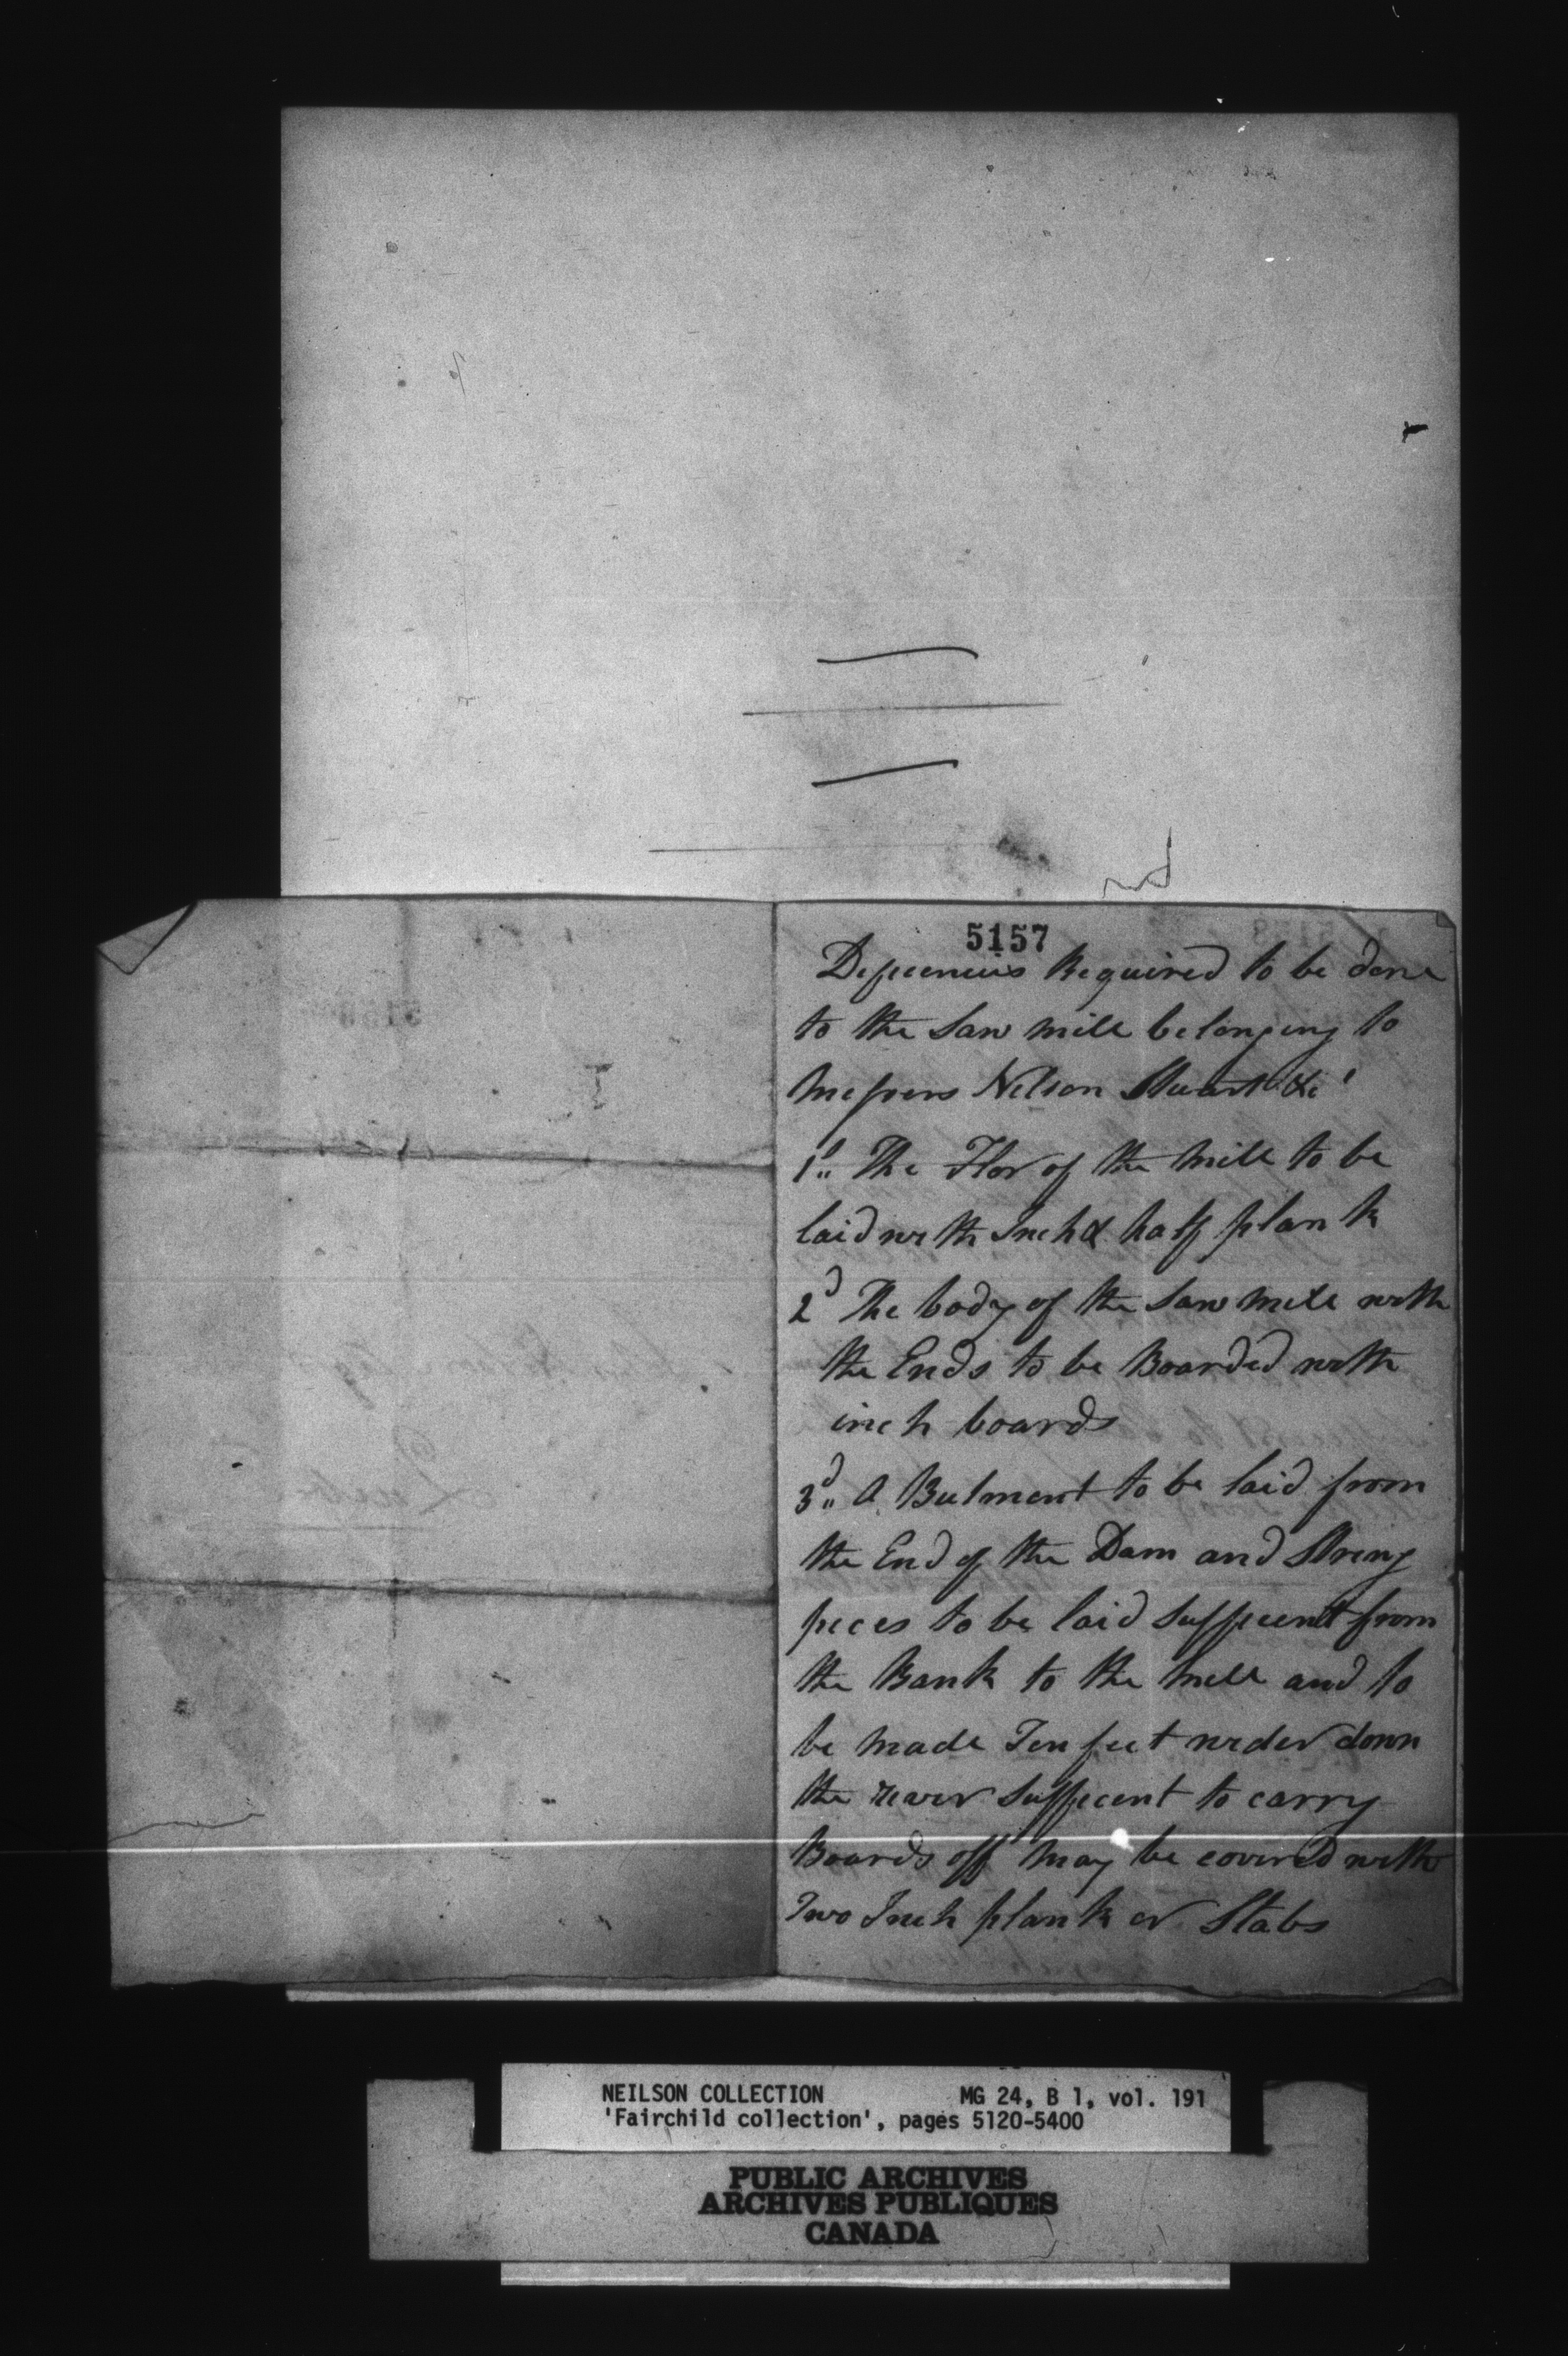 5157
Deficencies Required to be done
to the Saw mill belonging to
Messers Nelson Stuart &c
1st The Flor of the Mill to be
laid with Inch & half plank
2d The body of the Saw Mill with
the Ends to be Boarded with
inch boards
3d A Butment to be laid from
the End of the Dam and String
peces to be laid sufficent from
the Bank to the Mill and to
be made Ten feet wider down
the rever sufficent to carry
Boards off may be covered with
Two Inch plank or Slabs
NEILSON COLLECTION MG 24, B 1, vol. 191
'Fairchild collection', pages 5120-5400
PUBLIC ARCHIVES
ARCHIVES PUBLIQUES
CANADA